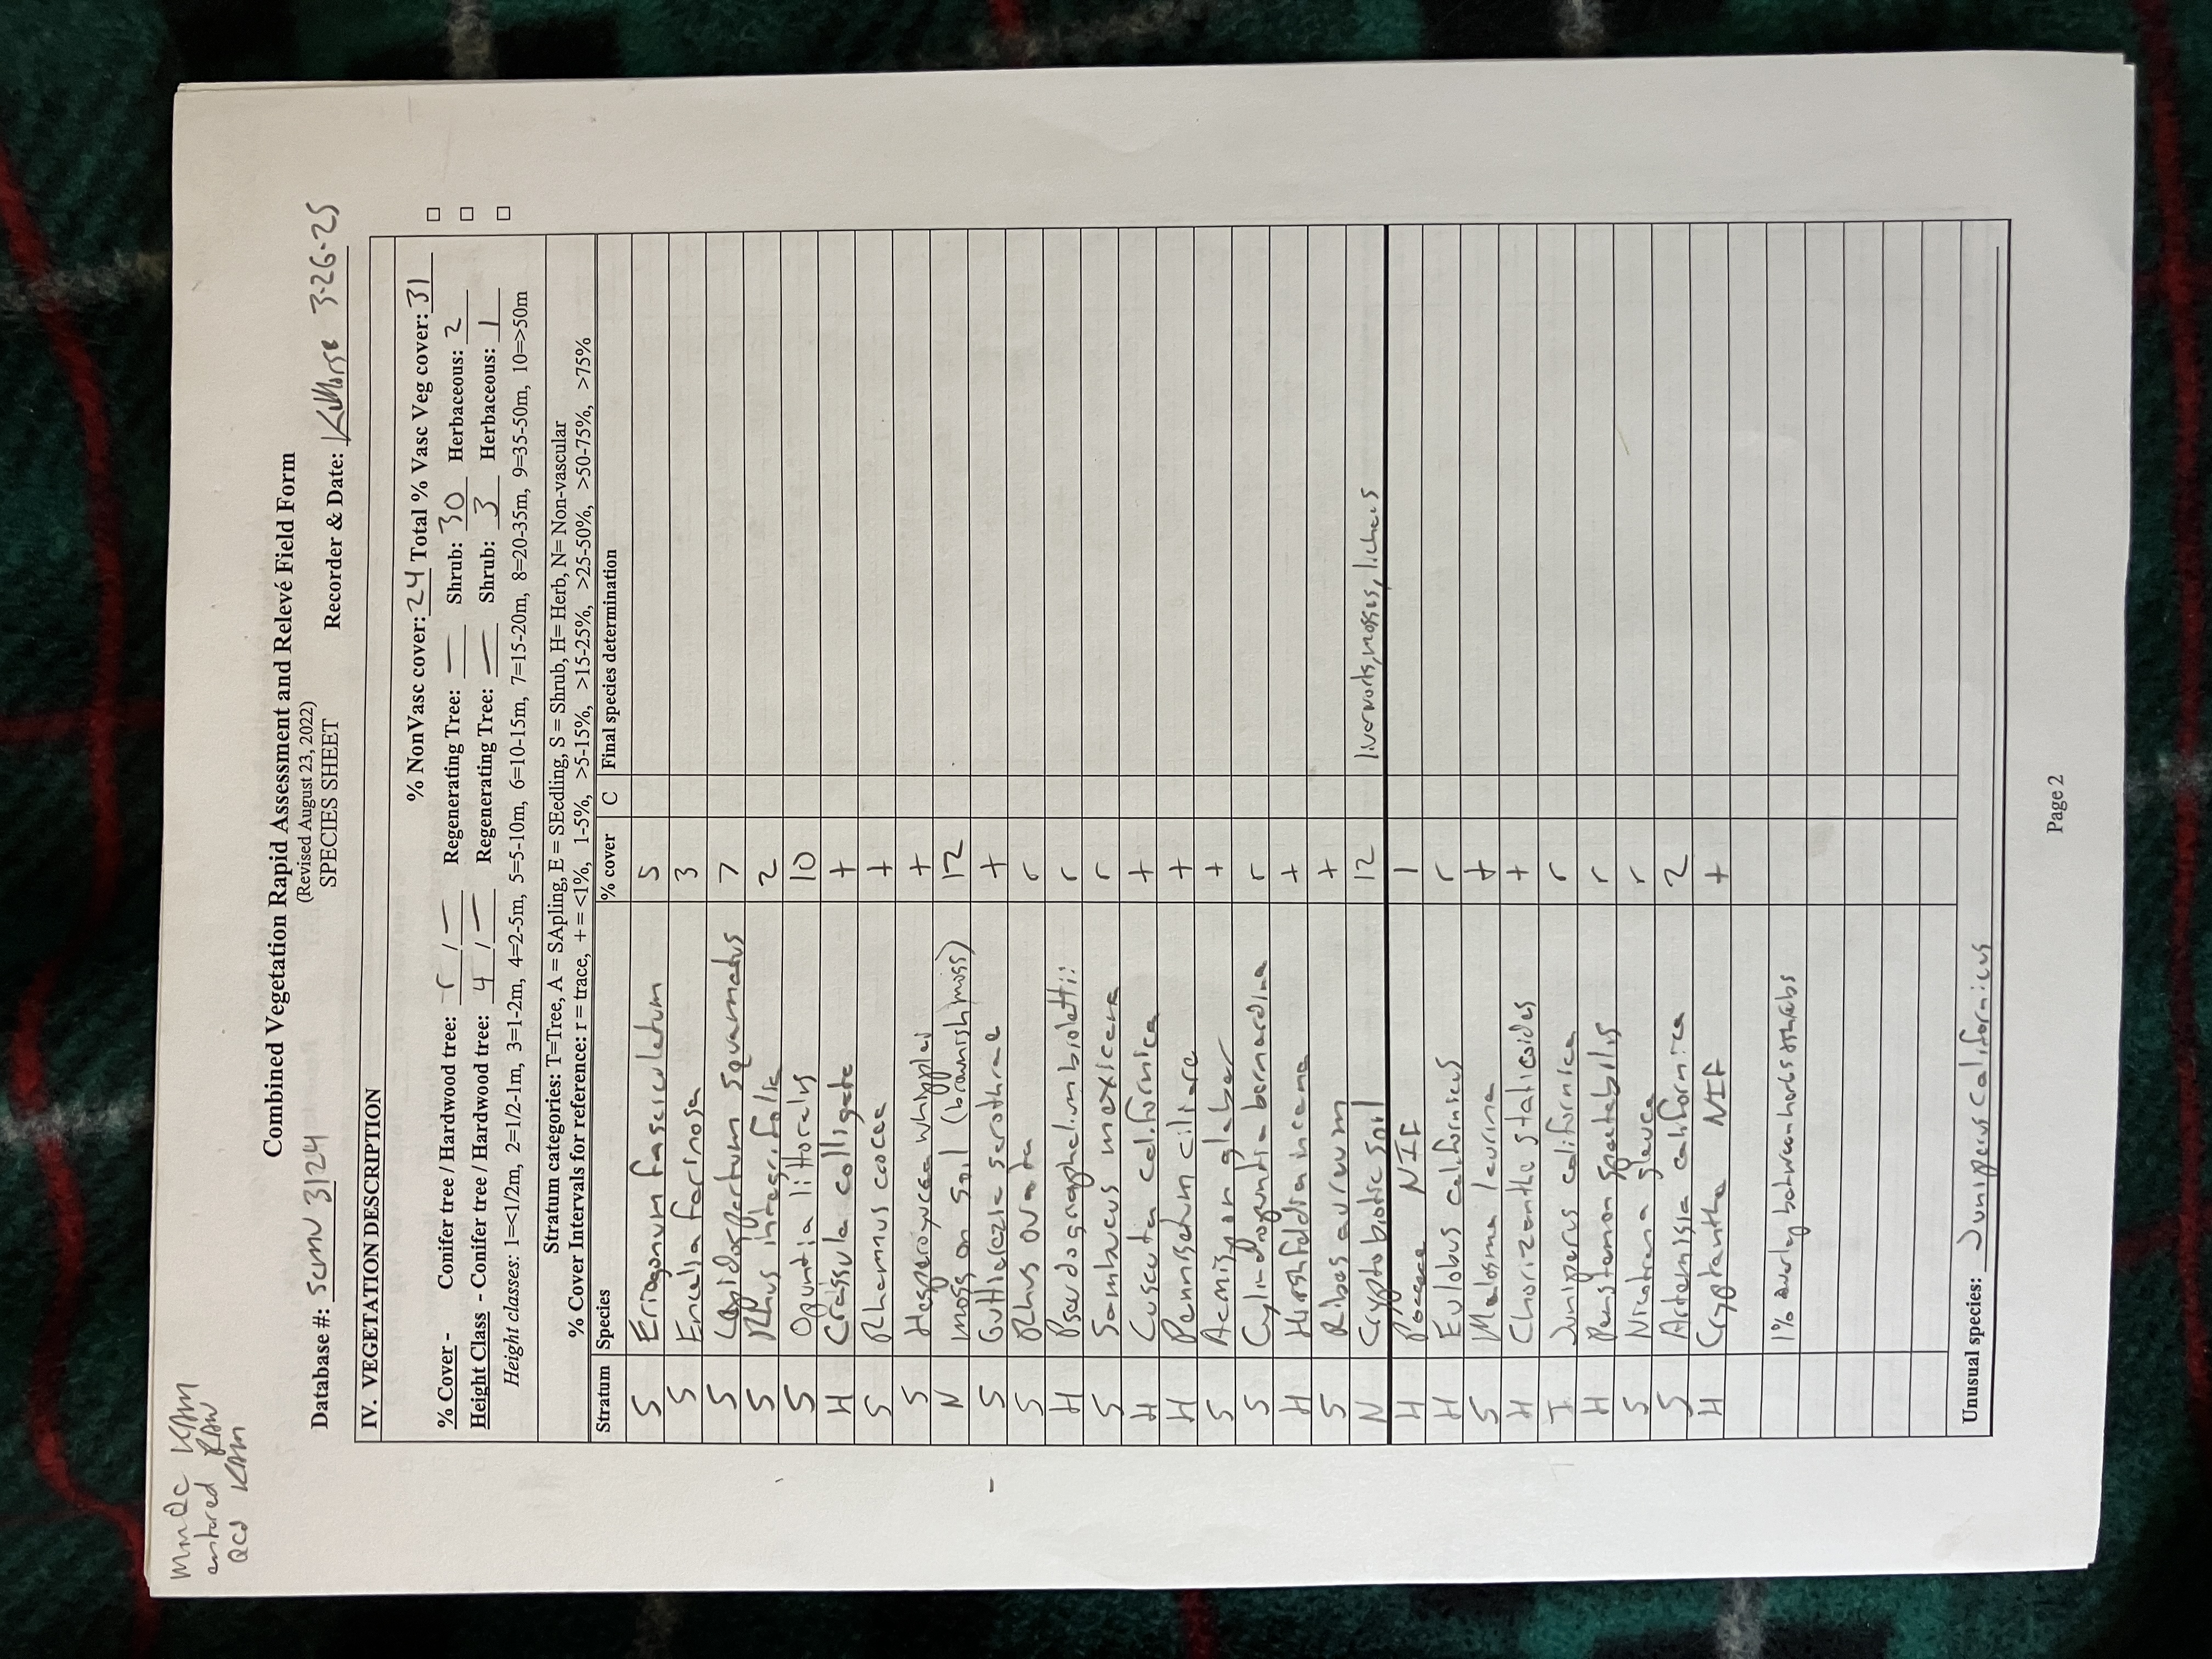 MMQC KAM
entered RAW
QCd KAM
Combined Vegetation Rapid Assessment and Relevé Field Form
(Revised August 23, 2022)
Database #: SCMV 3124 SPECIES SHEET Recorder & Date: KMorse 3-26-25
IV. VEGETATION DESCRIPTION
% NonVasc cover: 24 Total % Vasc Veg cover: 31
% Cover - Conifer tree / Hardwood tree: r / — Regenerating Tree: — Shrub: 30 Herbaceous: 2 □
Height Class - Conifer tree / Hardwood tree: 4 / — Regenerating Tree: — Shrub: 3 Herbaceous: 1 □
Height classes: 1=<1/2m, 2=1/2-1m, 3=1-2m, 4=2-5m, 5=5-10m, 6=10-15m, 7=15-20m, 8=20-35m, 9=35-50m, 10=>50m □
Stratum categories: T=Tree, A = SApling, E = SEedling, S = Shrub, H= Herb, N= Non-vascular
% Cover Intervals for reference: r = trace, + = <1%, 1-5%, >5-15%, >15-25%, >25-50%, >50-75%, >75%
Stratum Species % cover C Final species determination
S Eriogonum fasciculatum 5
S Encelia farinosa 3
S Lepidospartum squamatus 7
S Rhus integrifolia 2
S Opuntia littoralis 10
H Crassula colligata +
S Rhamnus crocea +
S Hesperoyucca whipplei +
N moss on soil (brownish moss) 12
S Gutierezia serothrae +
S Rhus ovata r
H Pseudognaphalium biolettii r
S Sambucus mexicana r
H Cuscuta californica +
H Pennisetum ciliare +
S Acmispon glaber +
S Cylindropuntia bernardina r
H Hirshfeldia incana +
S Ribes aureum +
N Cryptobiotic soil 12 liverworts, mosses, lichens
H Poaceae NIF 1
H Eulobus californicus r
S Malosma laurina +
H Chorizanthe staticoides +
T Juniperus californica r
H Penstemon spectabilis r
S Nicotiana glauca r
S Artemisia californica 2
H Cryptantha NIF +
1% overlap between herbs + shrubs
Unusual species: Juniperus californicus
Page 2